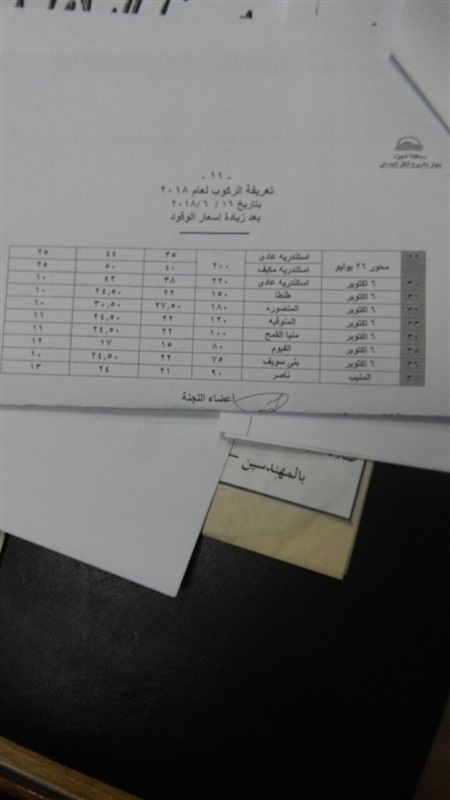 محافظة الجيزة
- ١١ -
تعريفة الركوب لعام ٢٠١٨
بتاريخ ١٦ / ٦ /٢٠١٨
بعد زيادة اسعار الوقود
محور ٢٦ يوليو اسكندريه عادى ٢٠٠ ٣٥ ٤٤ ٢٥
اسكندريه مكيف ٤٠ ٥٠ ٢٥
٣٠ ٦ اكتوبر اسكندريه عادى ٢٢٠ ٣٨ ٤٢ ١٠
٣١ ٦ اكتوبر طنطا ١٥٠ ٢٢ ٢٤,٥٠ ١٠
٣٢ ٦ اكتوبر المنصوره ١٨٠ ٢٧,٥٠ ٣٠,٥٠ ١٠
٣٣ ٦ اكتوبر المنوفيه ١٢٠ ٢٢ ٢٤,٥٠ ١١
٣٤ ٦ اكتوبر منيا القمح ١٠٠ ٢٢ ٢٤,٥٠ ١١
٣٥ ٦ اكتوبر الفيوم ٨٠ ١٥ ١٧ ١٢
٣٦ ٦ اكتوبر بنى سويف ٧٥ ٢٢ ٢٤,٥٠ ١٠
٣٧ المنيب ناصر ٩٠ ٢١ ٢٤ ١٣
اعضاء اللجنة
بالمهندسين